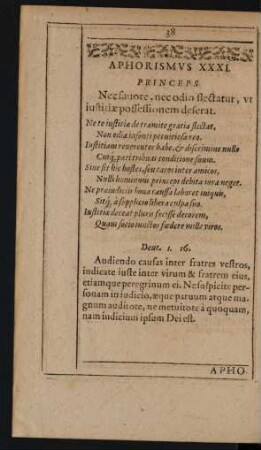 38
APHORISMVS XXXI.
PRINCEPS
Nec fauore, nec odio flectatur, vt
iustitiæ possessionem deserat.
Ne te iustitiæ de tramite gratia flectat,
Non odia infensi
Iustitiam reuerenter habe, & discrimine nullo
Cuiq, pari tribuas conditione suum.
Siue sit hic hostes, seu caros inter amicos,
Nulli hominum princeps debita iura neget.
Ne præiudicijs bona caussa laboret iniquis,
Sitq, à supplicio libera culpa suo.
Iustitiæ deceat plures fecisse decorem,
Quàm sacto inuictos fundere mille viros.
Deut. 1. 16.
Audiendo causas inter fratres vestros,
iudicate iuste inter virum & fratrem eius,
etiamque peregrinum ei. Ne suspicite per-
sonam in iudicio, æque paruum atque ma-
gnum auditote, ne metuitote à quoquam,
nam iudicium ipsum Dei est.
APHO-